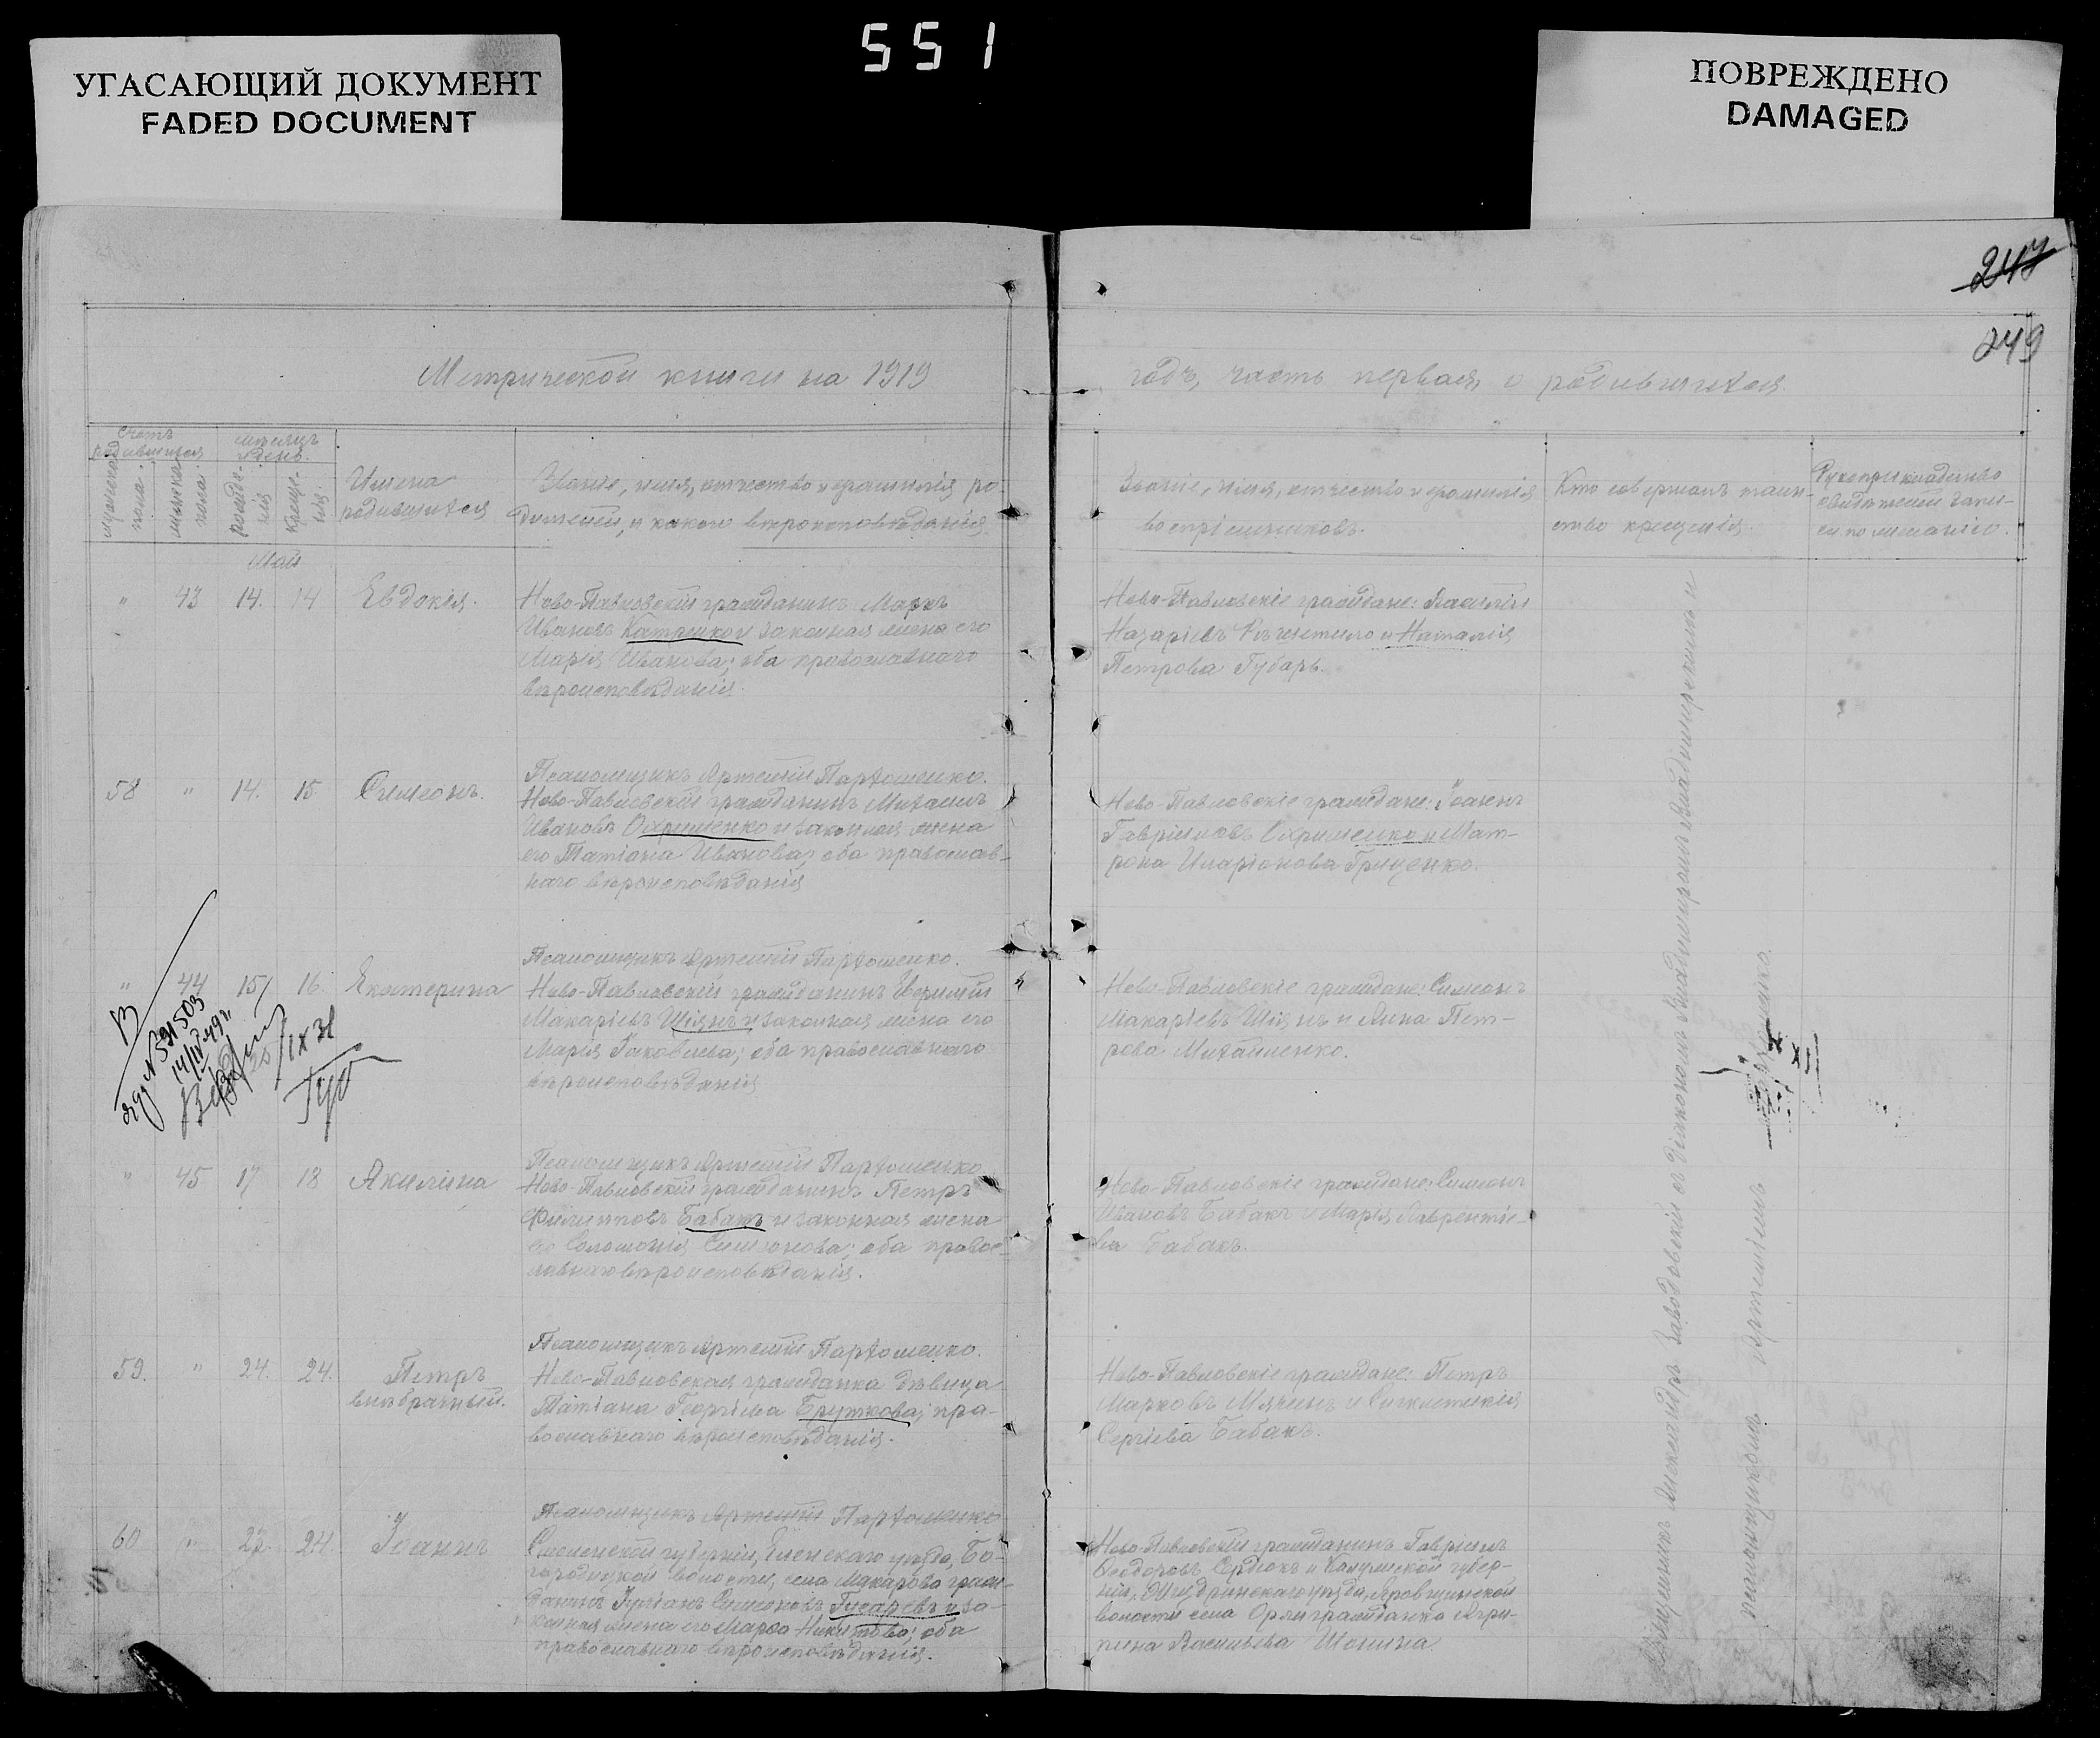 УГАСАЮЩИЙ ДОКУМЕНТ
FADED DOCUMENT
551
ПОВРЕЖДЕНО
DAMAGED
247
249
Метрической книги на 1919
годъ, часть первая, о родившихся.
Счетъ
родившихся
мужеска
пола.
женска
пола.
Мѣсяцъ
и день.
рожде-
нія
креще-
нія.
Имена
родившихся
Званіе, имя, отчество и фамилія ро-
дителей, и какого вѣроисповѣданія
Званіе, имя, отчество и фамилія
воспріемниковъ.
Кто совершалъ таин-
ство крещенія.
Рукоприкладство
свидѣтелей запи-
си по желанію.
Май
" 43 14. 14 Евдокія.
Ново-Павловскій гражданинъ Маркъ
Ивановъ Катренко и законная жена его
Марія Иванова; оба православнаго
вѣроисповѣданія.
Ново-Павловскіе граждане: Василій
Назаріевъ и Наталія
Петрова Губарь.
Псаломщикъ Артемій Пархоменко.
58 " 14. 15 Симеонъ.
Ново-Павловскій гражданинъ Михаилъ
Ивановъ Охрименко и законная жена
его Татіана Иванова; оба православ-
наго вѣроисповѣданія
Ново-Павловскіе граждане: Іоаннъ
Гавріиловъ Охрименко и Мат-
рона Иларіонова Гриценко.
Псаломщикъ Артемій Пархоменко.
" 44 15 16. Екатерина
Ново-Павловскій гражданинъ
Макаріевъ Шіянъ и законная жена его
Марія Іаковлева; оба православнаго
вѣроисповѣданія
Ново-Павловскіе граждане: Симеонъ
Макаріевъ Шіянъ и Анна Пет-
рова Михайленко.
№ 591503
Псаломщикъ Артемій Пархоменко
" 45 17 18 Акилина
Ново-Павловскій гражданинъ Петръ
Филипповъ Бабакъ и законная жена
его Соломонія Симеонова; оба право-
лавнаго вѣроисповѣданія.
Ново-Павловскіе граждане: Симеонъ
Ивановъ Бабакъ и Марія Лаврентіе-
ва Бабакъ.
Псаломщикъ Артемій Пархоменко.
59. " 24. 24. Петръ
внѣбрачный.
Ново-Павловская гражданка дѣвица
Татіана Георгіева Бруткова; пра-
вославнаго вѣроисповѣданія.
Ново-Павловскіе граждане: Петръ
Марковъ и
Сергіева Бабакъ.
Псаломщикъ Артемій Пархоменко
60 " 24. Іоаннъ
Смоленской губерніи, уѣзда, Бо-
городицкой волости, села Макарово граж-
данинъ Симеоновъ и за-
конная жена его Марѳа Никитова; оба
православнаго вѣроисповѣданія.
Ново-Павловскій гражданинъ Гавріилъ
Ѳеодоровъ Сердюкъ и Калужской губер-
ніи, уѣзда,
волости села гражданка Агри-
пина Васильева Шонина.
Священникъ Александръ Заводовскій съ Діакономъ Владиміромъ Владимірскимъ и
псаломщикомъ Артеміемъ Пархоменко.